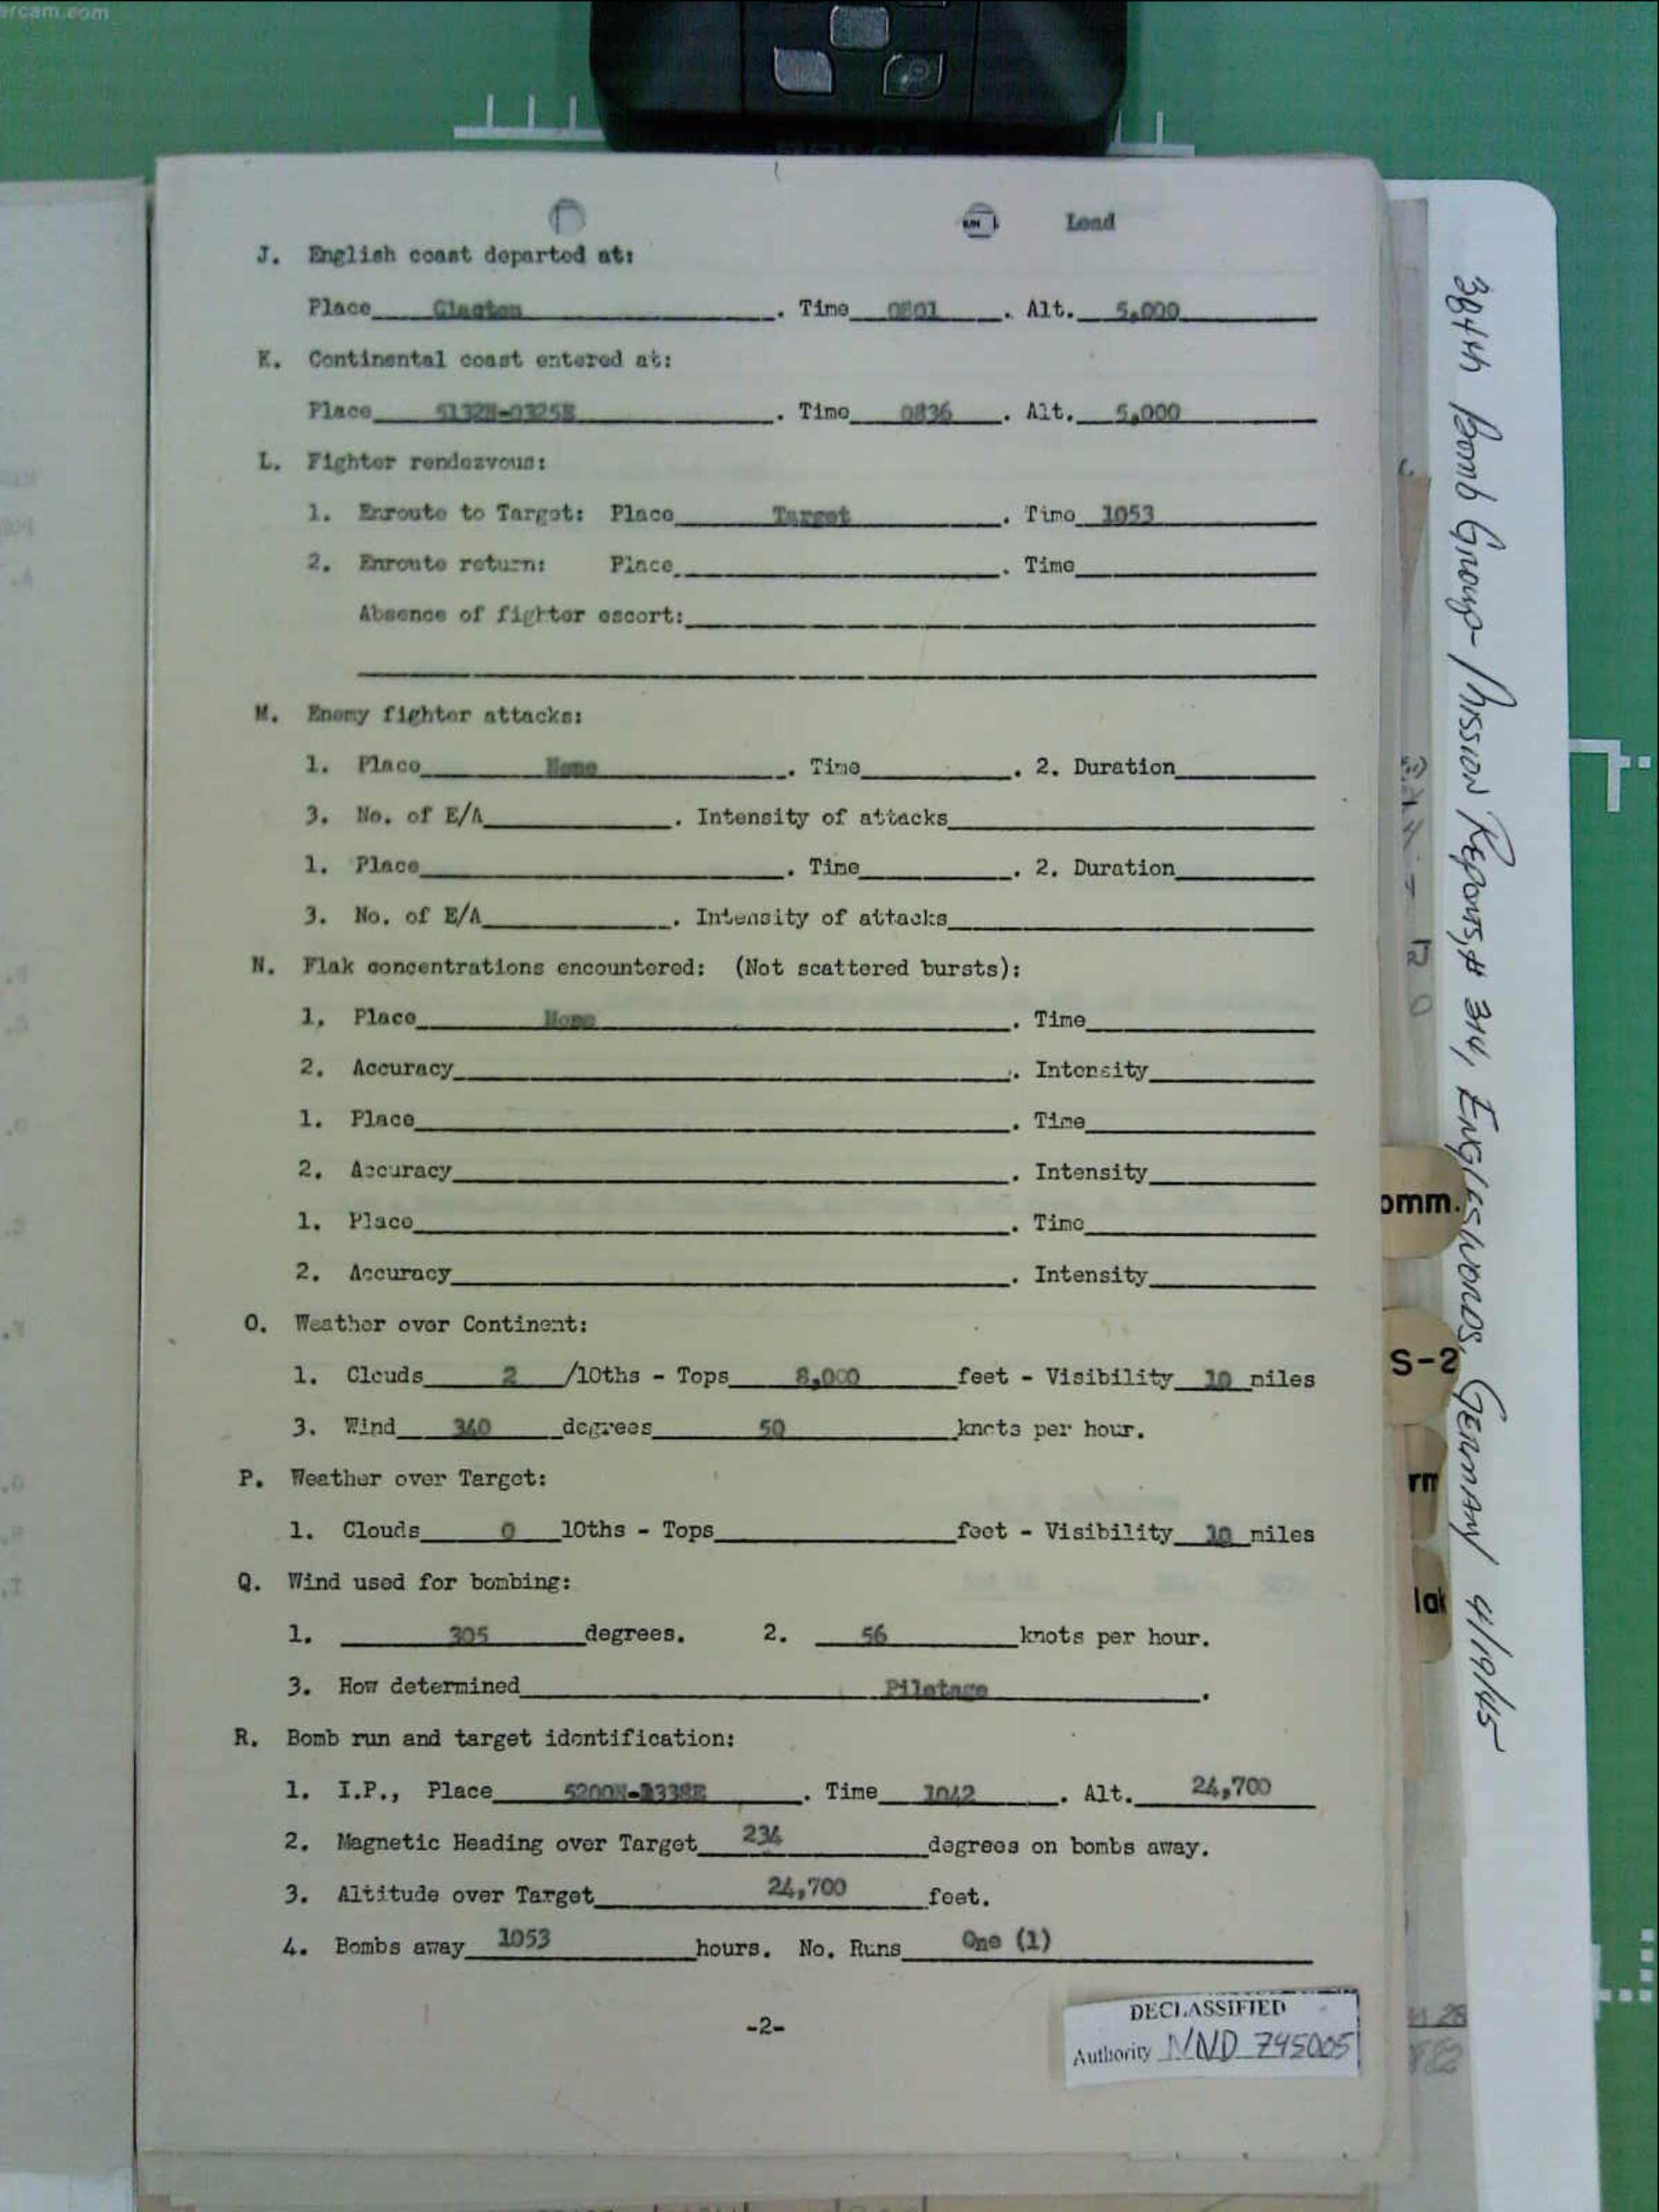 ercam.com
Lead
J. English coast departed at:
Place Clacton . Time 0801 . Alt. 5,000
K. Continental coast entered at:
Place 5132N-0325E . Time 0836 . Alt. 5,000
L. Fighter rendezvous:
1. Enroute to Target: Place Target . Time 1053
2. Enroute return: Place . Time
Absence of fighter escort:
M. Enemy fighter attacks:
1. Place None . Time . 2. Duration
3. No. of E/A . Intensity of attacks
1. Place . Time . 2. Duration
3. No. of E/A . Intensity of attacks
N. Flak concentrations encountered: (Not scattered bursts):
1. Place None . Time
2. Accuracy . Intensity
1. Place . Time
2. Accuracy . Intensity
1. Place . Time
2. Accuracy . Intensity
O. Weather over Continent:
1. Clouds 2 /10ths - Tops 8,000 feet - Visibility 10 miles
3. Wind 340 degrees 50 knots per hour.
P. Weather over Target:
1. Clouds 0 10ths - Tops feet - Visibility 10 miles
Q. Wind used for bombing:
1. 305 degrees. 2. 56 knots per hour.
3. How determined Pilotage .
R. Bomb run and target identification:
1. I.P., Place . Time 1042 . Alt. 24,700
2. Magnetic Heading over Target 234 degrees on bombs away.
3. Altitude over Target 24,700 feet.
4. Bombs away 1053 hours. No. Runs One (1)
-2-
DECLASSIFIED
Authority NND 745005
384th Bomb Group - Mission Reports, # 314, Englesworos, Germany 4/19/45
omm.
S-2
rm
lak